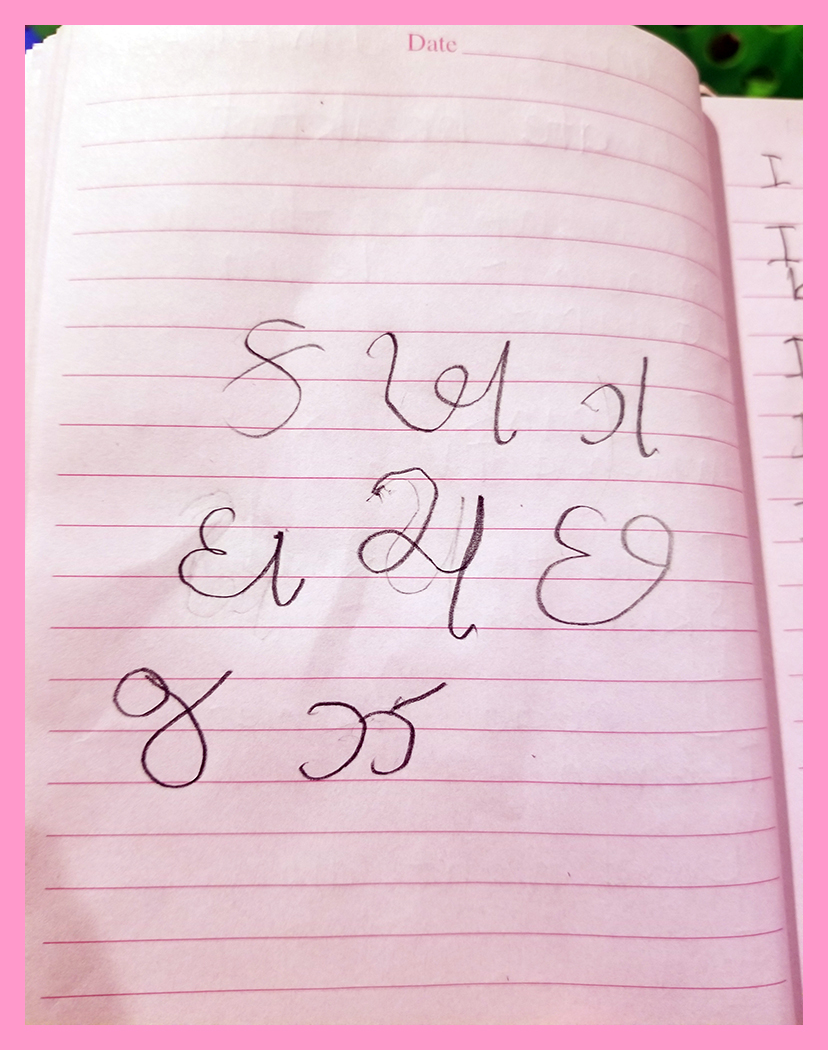 Date
ક ખ ગ
ઘ ચ છ
જ ઝ
I
I